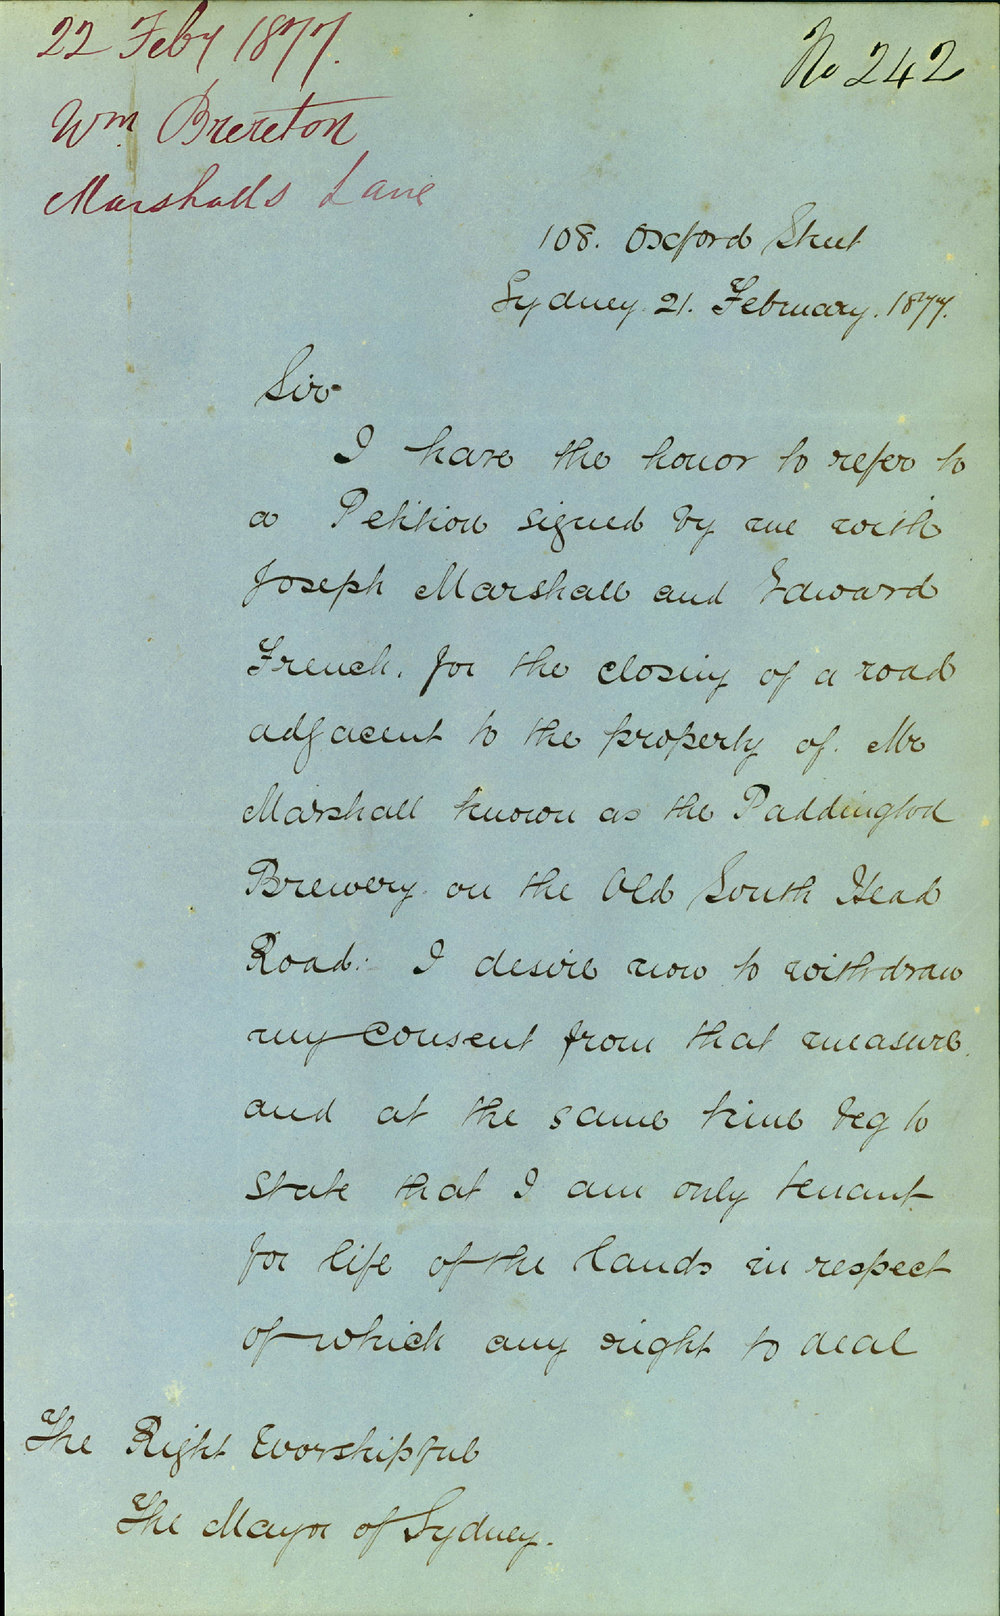 22 Feby 1877.
No 242
Wm Brereton
Marshalls Lane
108. Oxford Street
Sydney. 21. February. 1877.
Sir
I have the honor to refer to
a Petition signed by me with
Joseph Marshall and Edward
French, for the closing of a road
adjacent to the property of Mr
Marshall known as the Paddington
Brewery on the Old South Head
Road: I desire now to withdraw
my consent from that measure
and at the same time beg to
state that I am only tenant
for life of the lands in respect
of which any right to deal
The Right Worshipful
The Mayor of Sydney.